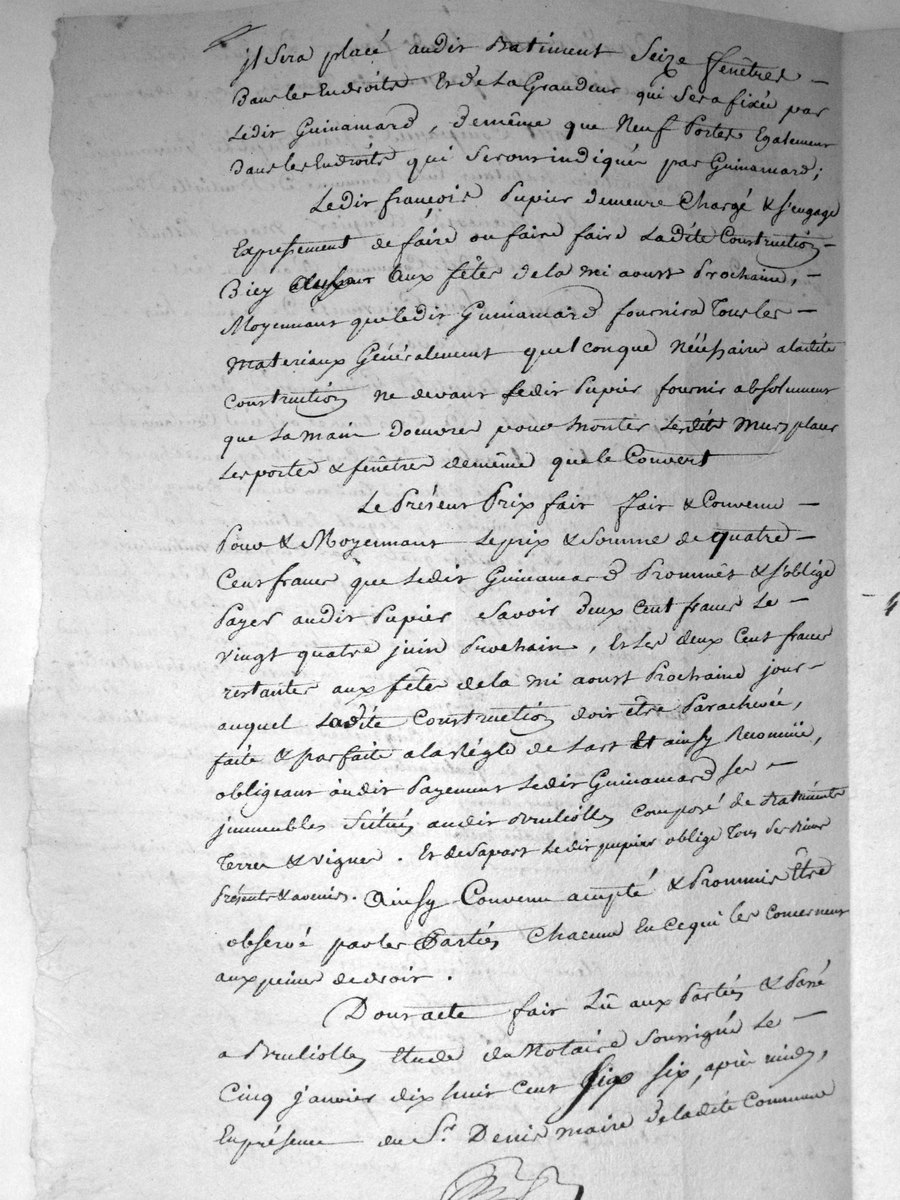 jl Sera placé audit Batiment Seize fenêtres —
Dans les Endroits Et de La Grandeur qui Sera fixée par
Ledit Guinamard, de même que Neuf Portes Egalement
Dans les Endroits qui Seront indiqués par Guinamard ;
Ledit françois Pupier demeure Chargé & s'engage
Expressement de faire ou faire faire Ladite Construction —
D'icy aux fêtes de la mi aoust Prochaine, —
Moyennant que ledit Guinamard fournira Tous les —
Materiaux Généralement quelconque Nécessaire a ladite
Construction ne devant ledit Pupier fournir absolument
que La main d'oeuvre pour Monter Lesdits Murs placer
Les portes & fenêtres de même que le Couvert
Le Présent Prix fait fait & Convenu —
Pour & Moyennant Le prix & Somme de quatre —
Cent francs que Ledit Guinamard Prommèt & s'oblige
Payer audit Pupier Savoir deux Cent francs Le —
vingt quatre juin Prochain, Et Les deux Cent francs
restantes aux fêtes de la mi aoust Prochaine jour —
auquel Ladite Construction doit être Parachevée,
faite & parfaite a la Régle de Lart Et ainsy Reconnüe,
obligeant audit Payement Ledit Guinamard Ses —
jmmeubles Sitüés audit Brulliolles Composé de Batiments
Terres & vignes. Et de Sa part Ledit pupier oblige Tous Ses Biens
Présents & avenirs. Ainsy Convenu accepté & Prommis Être
observé par les Parties Chacune En ce qui les Concernent
aux peines de droit.
Dont acte fait Lû aux Parties & Passé
a Brulliolles Etude du Notaire Soussigné Le —
Cinq janvier dix huit Cent Six, après midy,
En présence du Sr. Denis maire de ladite Commune